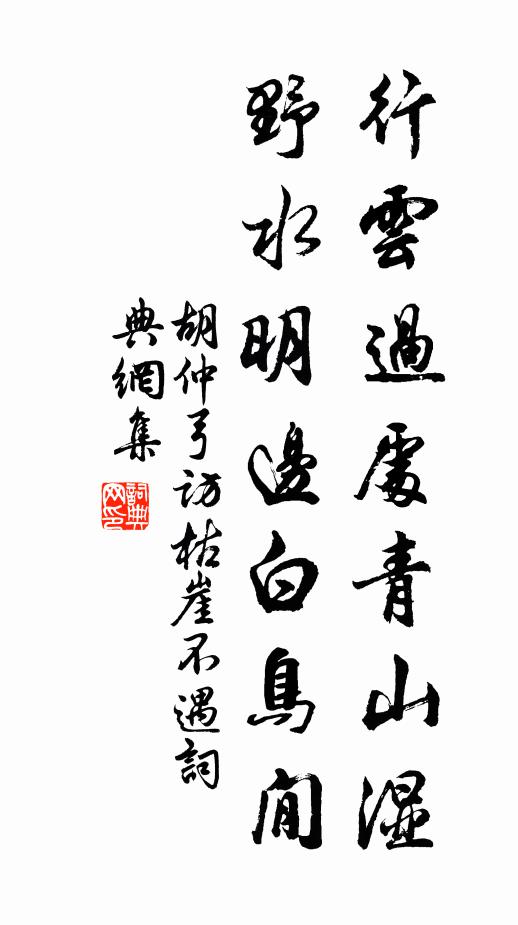 行雲過處青山濕
野水明邊白鳥閒
胡仲弓訪枯崖不遇詞
典網集
詞典網印